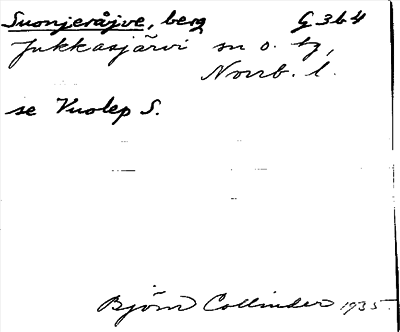 Suonjeråjve, berg G 364
Jukkasjärvi sn o. tg,
Norrb. l.
se Vuolep S.
Björn Collinder 1935.